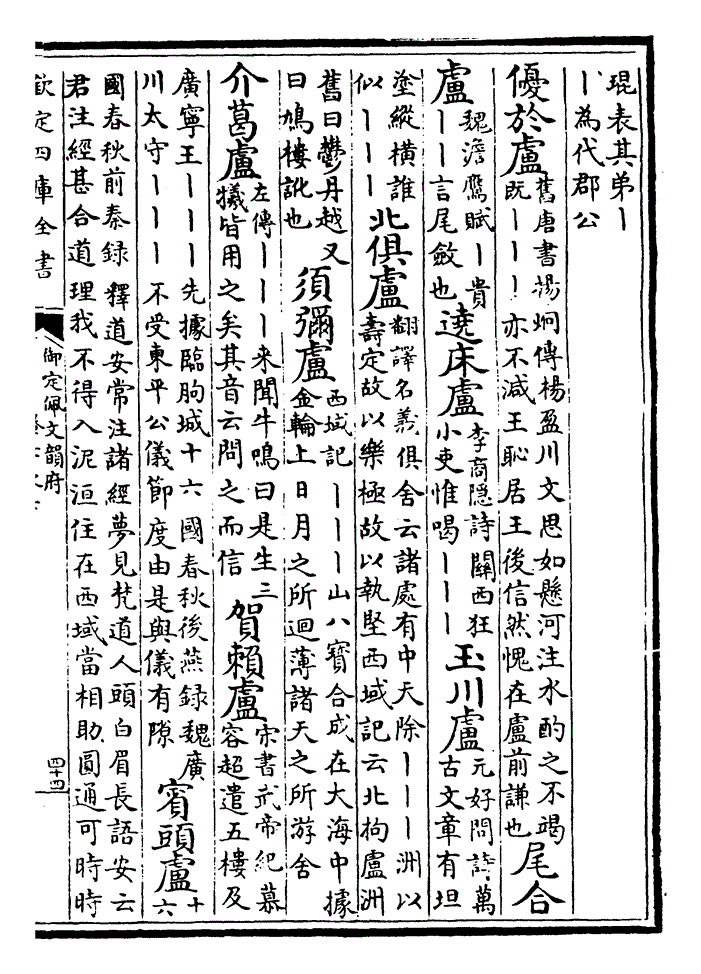 琨表其弟丨
丨為代郡公
優於盧
舊唐書楊炯傳楊盈川文思如懸河注水酌之不竭
既丨丨丨亦不減王恥居王後信然愧在盧前謙也
尾合
盧
魏澹鷹賦丨貴
丨丨言尾斂也
遶床盧
李商隱詩關西狂
小吏惟喝丨丨丨
玉川盧
元好問詩萬
古文章有坦
塗縱橫誰
似丨丨丨
北俱盧
翻譯名義俱舍云諸處有中天除丨丨丨洲以
壽定故以樂極故以執堅西域記云北拘盧洲
舊曰鬱丹越又
曰鳩樓訛也
須彌盧
西域記丨丨丨山八寶合成在大海中據
金輪上日月之所迴薄諸天之所游舍
介葛盧
左傳丨丨丨来聞牛鳴曰是生三
犧皆用之矣其音云問之而信
賀賴盧
宋書武帝紀慕
容超遣五樓及
廣寧王丨丨丨先據臨朐城十六國春秋後燕録魏廣
川太守丨丨丨不受東平公儀節度由是與儀有隙
賓頭盧
十
六
國春秋前秦録釋道安常注諸經夢見梵道人頭白眉長語安云
君注經甚合道理我不得入泥洹住在西域當相助圓通可時時
欽定四庫全書
御定佩文韻府
四十四